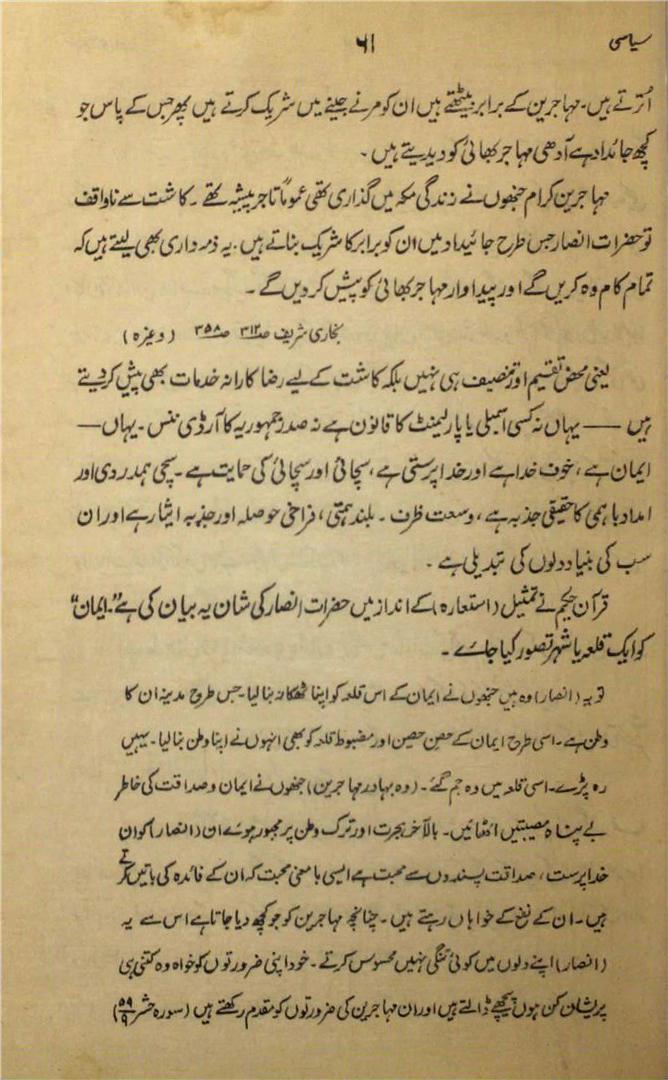 سیاسی
۶۱
اُترتے ہیں۔ مہاجرین کے برابر بیٹھتے ہیں ان کو مرنے جینے میں شریک کرتے ہیں پھر جس کے پاس جو
کچھ جائداد ہے آدھی مہاجر بھائی کو دیدیتے ہیں۔
مہاجرین کرام جنھوں نے زندگی مکہ میں گذاری تھی عموماً تاجر پیشہ تھے۔ کاشت سے ناواقف
تو حضرات انصار جس طرح جائیداد میں ان کو برابر کا شریک بناتے ہیں۔ یہ ذمہ داری بھی لیتے ہیں کہ
تمام کام وہ کریں گے اور پیداوار مہاجر بھائی کو پیش کر دیں گے۔
بخاری شریف صـ۳۱۲ صـ۳۵۸ (وغیرہ)
یعنی محض تقسیم اور تنصیف ہی نہیں بلکہ کاشت کے لیے رضا کارانہ خدمات بھی پیش کر دیتے
ہیں —— یہاں نہ کسی اسمبلی یا پارلیمنٹ کا قانون ہے نہ صدر جمہوریہ کا آرڈی ننس۔ یہاں —
ایمان ہے، خوف خدا ہے اور خدا پرستی ہے، سچائی اور سچائی کی حمایت ہے۔ سچی ہمدردی اور
امداد باہمی کا حقیقی جذبہ ہے، وسعت ظرف۔ بلند ہمتی، فراخی حوصلہ اور جذبہ ایثار ہے اور ان
سب کی بنیاد دلوں کی تبدیلی ہے۔
قرآن حکیم نے تمثیل (استعارہ) کے انداز میں حضرات انصار کی شان یہ بیان کی ہے۔ "ایمان"
کو ایک قلعہ یا شہر تصور کیا جائے۔
تو یہ (انصار) وہ ہیں جنھوں نے ایمان کے اس قلعہ کو اپنا ٹھکانہ بنالیا۔ جس طرح مدینہ ان کا
وطن ہے۔ اسی طرح ایمان کے حصن حصین اور مضبوط قلعہ کو بھی انہوں نے اپنا وطن بنالیا۔ یہیں
رہ پڑے۔ اسی قلعہ میں وہ جم گئے۔ (وہ بہادر مہاجرین) جنھوں نے ایمان و صداقت کی خاطر
بے پناہ مصیبتیں اٹھائیں۔ بالآخر ہجرت اور ترک وطن پر مجبور ہوئے ان (انصار) کو ان
خدا پرست، صداقت پسندوں سے محبت ہے ایسی با معنی محبت کہ ان کے فائدہ کی باتیں کرتے
ہیں۔ ان کے نفع کے خواہاں رہتے ہیں۔ چنانچہ مہاجرین کو جو کچھ دیا جاتا ہے اس سے یہ
(انصار) اپنے دلوں میں کوئی تنگی نہیں محسوس کرتے۔ خود اپنی ضرورتوں کو خواہ وہ کتنی ہی
پریشان کن ہوں پیچھے ڈالتے ہیں اور ان مہاجرین کی ضرورتوں کو مقدم رکھتے ہیں (سورہ حشر ۵۹/۹)